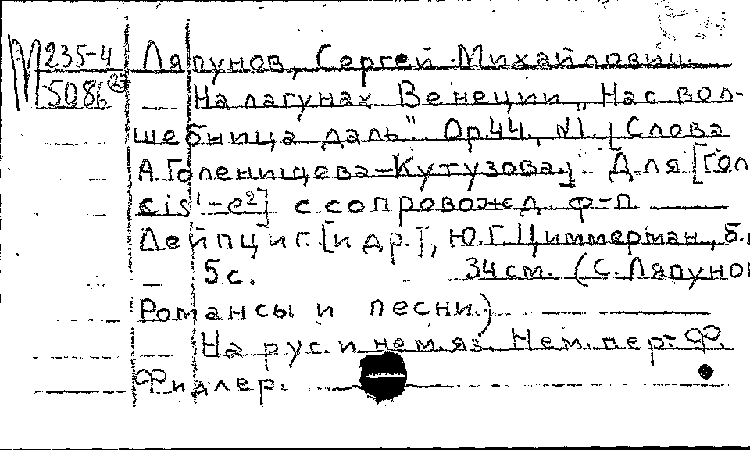 М 235-4 Ляпунов, Сергей Михайлович.
5086 На лагунах Венеции „Нас вол-
шебница даль". Ор.44, №1. [Слова
А. Голенищева-Кутузова.] Для [гол
cis¹-e²] с сопровожд. ф-п.
Лейпциг [и др.], Ю.Г. Циммерман, б.
5 с. 34 см. (С. Ляпунов
Романсы и песни.)
На рус. и нем. яз. Нем. пер. Ф.
Фидлер.